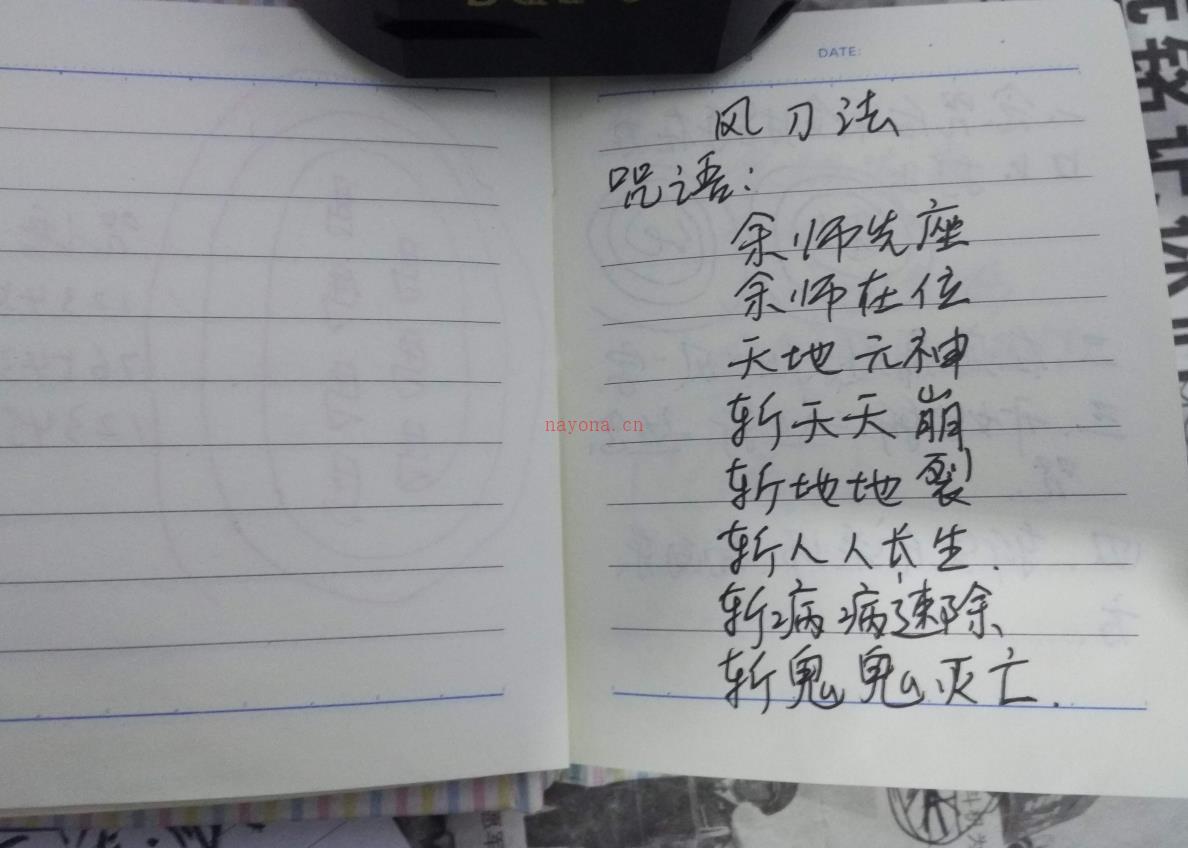 DATE:
风刀法
咒语:
余师先座
余师在位
天地元神
斩天天崩
斩地地裂
斩人人长生.
斩病病速除
斩鬼鬼灭亡.
nayona.cn